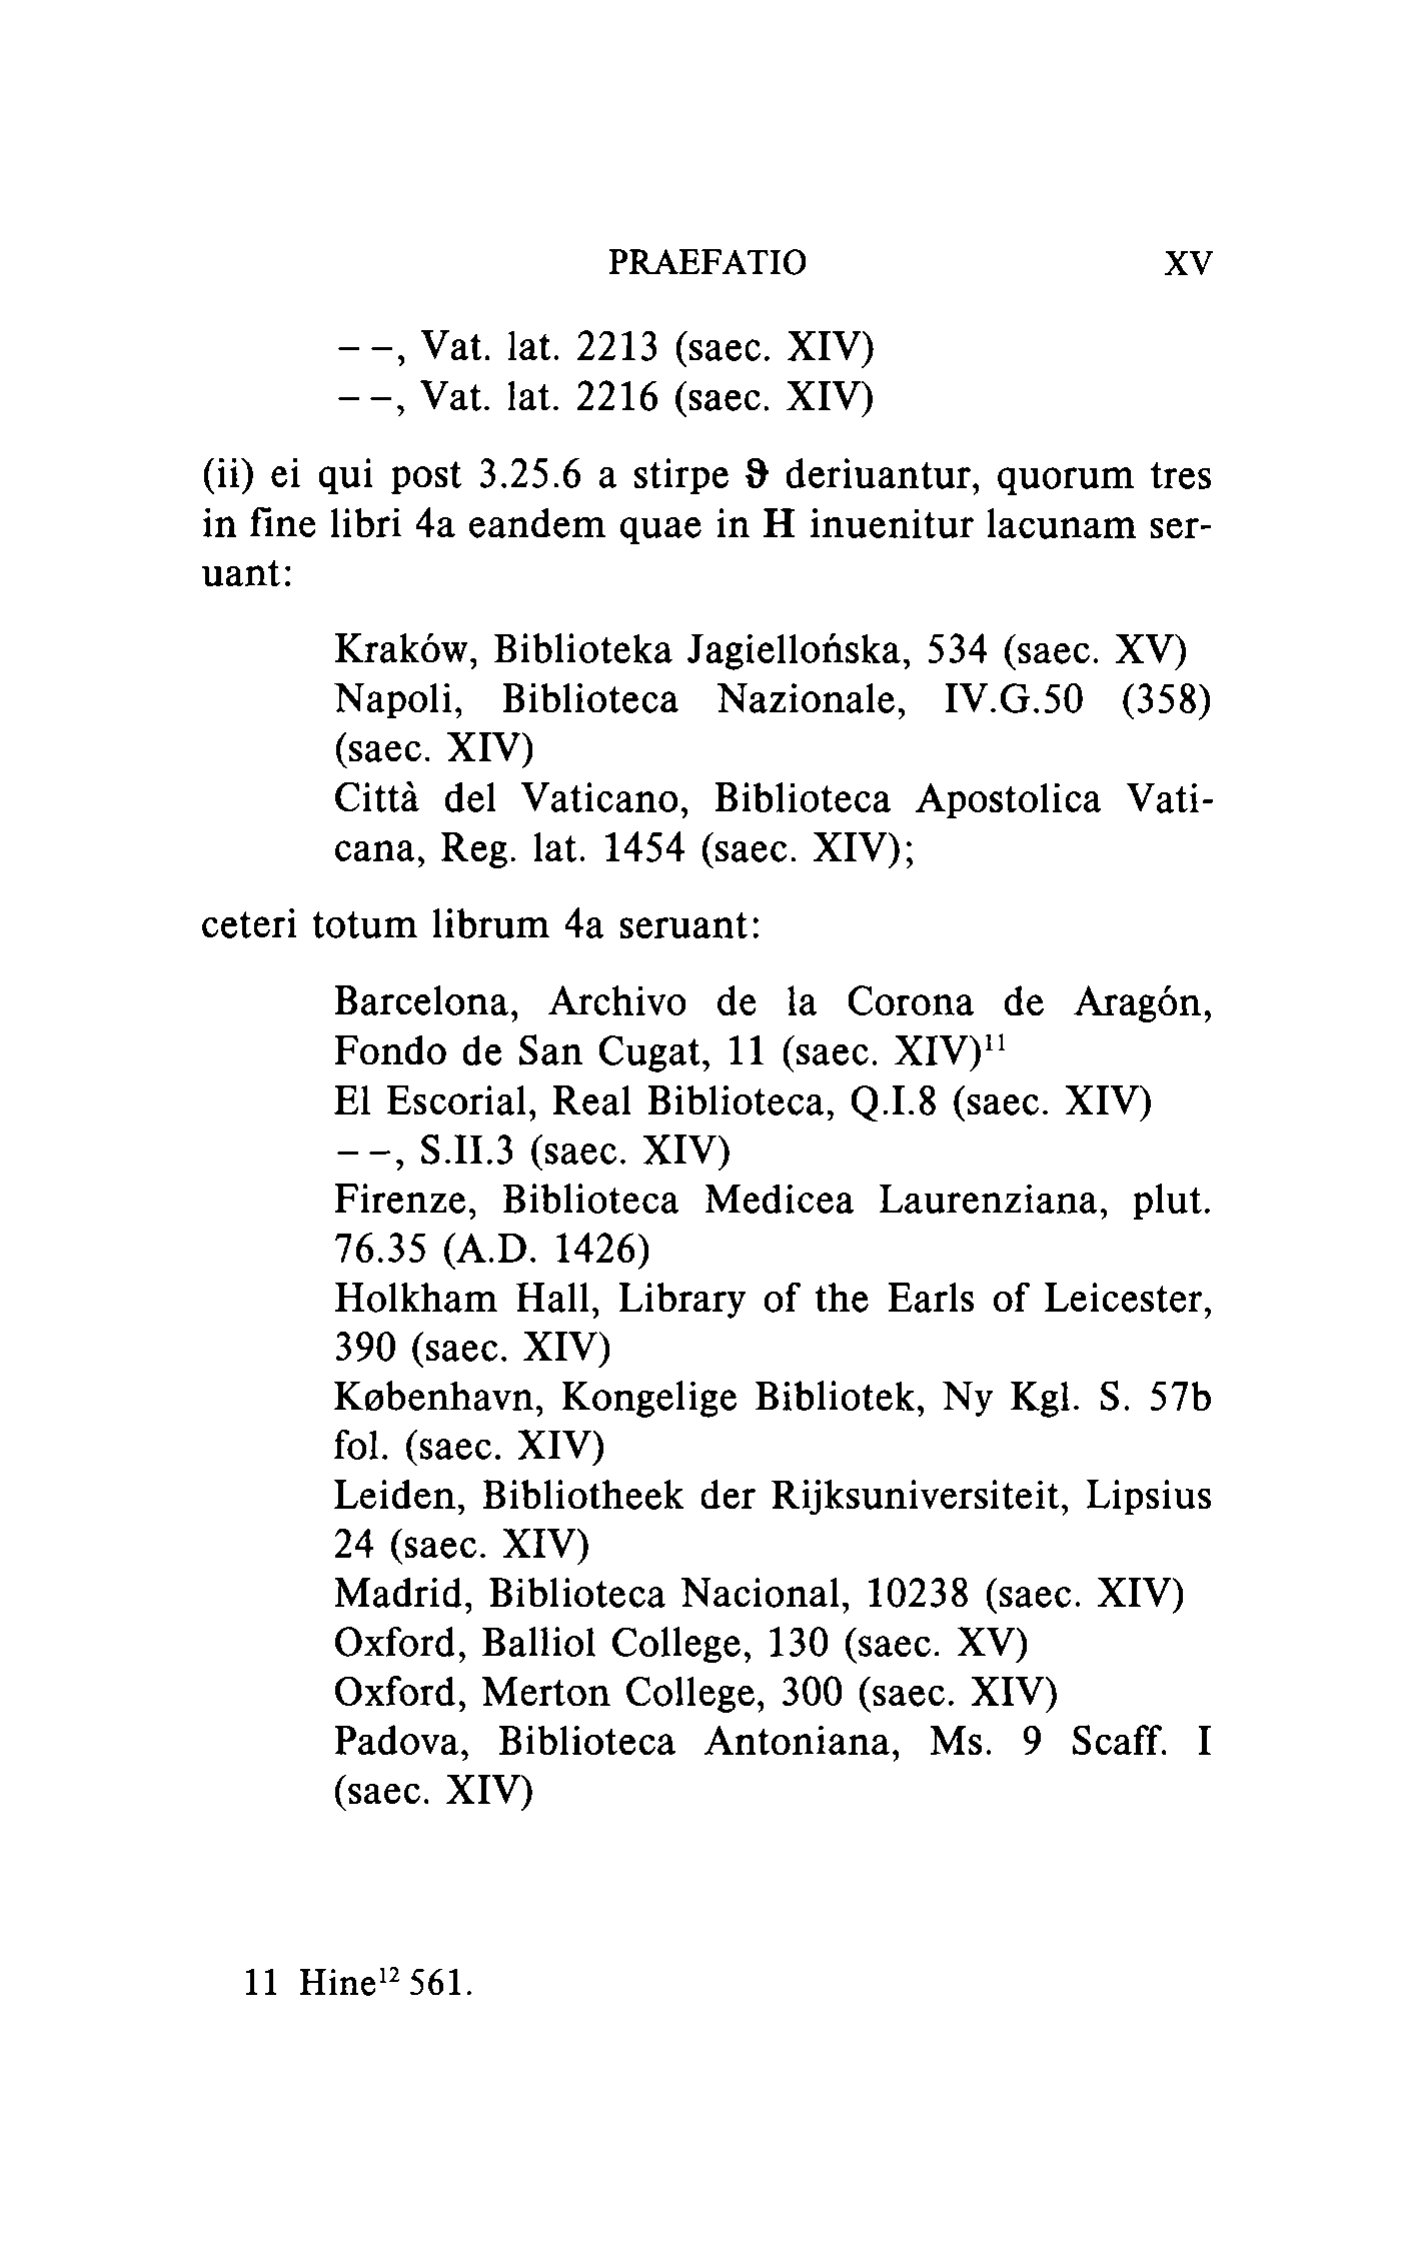 PRAEFATIO XV
– –, Vat. lat. 2213 (saec. XIV)
– –, Vat. lat. 2216 (saec. XIV)
(ii) ei qui post 3.25.6 a stirpe ϑ deriuantur, quorum tres
in fine libri 4a eandem quae in H inuenitur lacunam ser-
uant:
Kraków, Biblioteka Jagiellońska, 534 (saec. XV)
Napoli, Biblioteca Nazionale, IV.G.50 (358)
(saec. XIV)
Città del Vaticano, Biblioteca Apostolica Vati-
cana, Reg. lat. 1454 (saec. XIV);
ceteri totum librum 4a seruant:
Barcelona, Archivo de la Corona de Aragón,
Fondo de San Cugat, 11 (saec. XIV)¹¹
El Escorial, Real Biblioteca, Q.I.8 (saec. XIV)
– –, S.II.3 (saec. XIV)
Firenze, Biblioteca Medicea Laurenziana, plut.
76.35 (A.D. 1426)
Holkham Hall, Library of the Earls of Leicester,
390 (saec. XIV)
København, Kongelige Bibliotek, Ny Kgl. S. 57b
fol. (saec. XIV)
Leiden, Bibliotheek der Rijksuniversiteit, Lipsius
24 (saec. XIV)
Madrid, Biblioteca Nacional, 10238 (saec. XIV)
Oxford, Balliol College, 130 (saec. XV)
Oxford, Merton College, 300 (saec. XIV)
Padova, Biblioteca Antoniana, Ms. 9 Scaff. I
(saec. XIV)
11 Hine¹² 561.